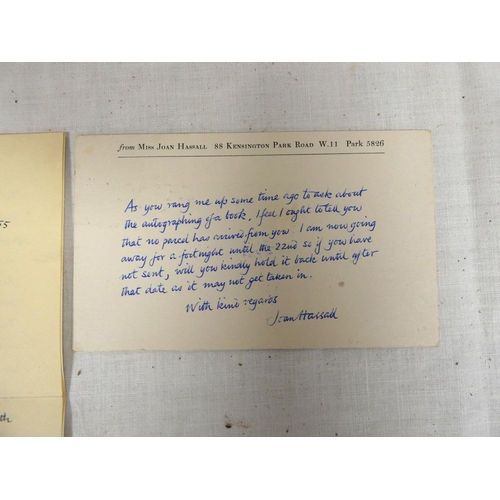 from Miss Joan Hassall 88 Kensington Park Road W.11 Park 5826
As you rang me up some time ago to ask about
the autographing of a book, I feel I ought to tell you
that no parcel has arrived from you. I am now going
away for a fortnight until the 22nd so if you have
not sent, will you kindly hold it back until after
that date as it may not get taken in.
With kind regards
Joan Hassall
55